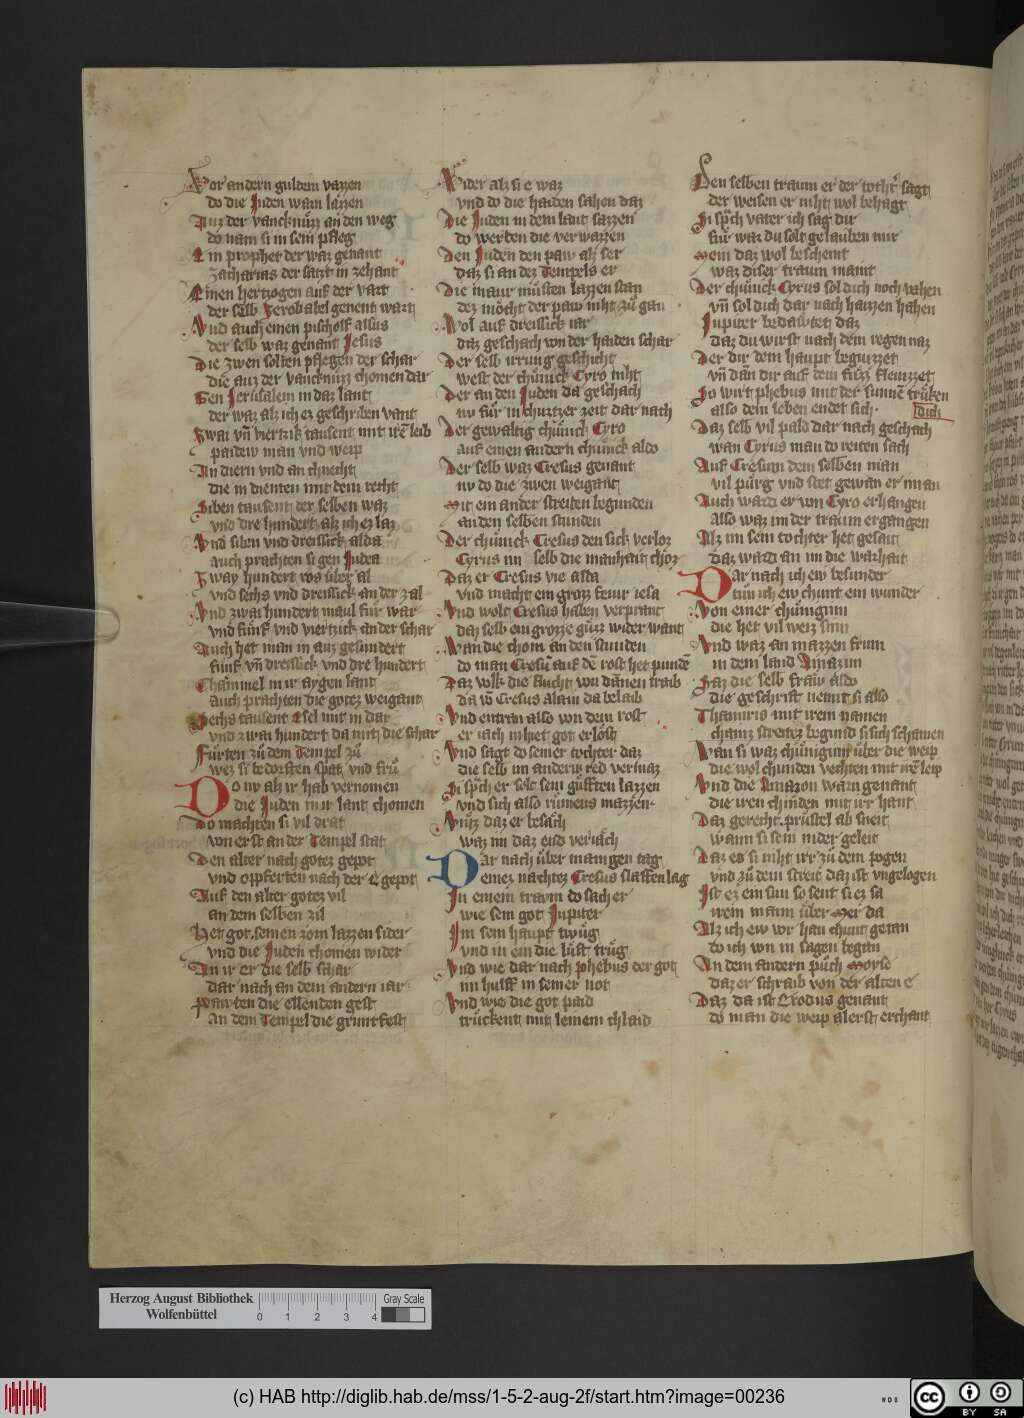 Vor andern guldem vazzen
do die Juden warn lazzen
Auz der vancknüzz an den weg
do nam si in sein pfleg
Ein prophet der waz genant
Zacharias der satzt in zehant
Einen hertzogen auf der vart
der selb Zerobabel genent wart
Vnd auch einen pischolf alsus
der selb waz genant Jesus
Die zwen solten pflegen der schar
die auz der vancknüzz chomen dar
Gen Jerusalem in daz lant
der waz alz ich ez geschriben vant
Zwai vn̄ viertzik tausent mit irē leib
paidew man vnd weip
An diern vnd an chnecht
die in dienten mit dem recht
Siben tausent der selben waz
vnd dre hundert alz ich ez laz
Vnd siben vnd dreissick alda
auch prachten si gen Judea
Zway hundert ros über al
vnd sechs vnd dreissick an der zal
Vnd zwai hundert maul für war
vnd fünf vnd viertzick an der schar
Auch het man in auz gesundert
fünf vn̄ dreissick vnd dre hundert
Chammel in ir aygen lant
auch prachten die gotez weigant
Sechs tausent Esel mit in dar
vnd zwai hundert da mit die schar
Fürten zü dem Tempel zü
wez si bedorften spat vnd frü
Do nv alz ir hab vernomen
die Juden in ir lant chomen
Do machten si vil drat
von erst an der Tempel stat
Den alter nach gotez gepot
vnd oppferten nach der E gepot
Auf den alter gotez vil
an dem selben zil
Het got seinen zorn lazzen sider
vnd die Juden chomen wider
An ir er die selb schar
dar nach an dem andern iar
Pawten die ellenden gest
an dem Tempel die gruntfest
Wider alz si e waz
vnd do die haiden sahen daz
Die Juden in dem lant sazzen
do werten die verwazzen
Den Juden den paw alz ser
daz si an dez Tempels er
Die maur müsten lazzen stan
dez möcht der paw niht zü gan
Wol auf dreissick iar
daz geschach von der haiden schar
Der selb irrung geschicht
west der chünick Cyro niht
Der an den Juden da geschach
nv für in churtzer zeit dar nach
Der gewaltig chünick Cyro
auf einen andern chünick aldo
Der selb waz Cresus genant
nv do die zwen weigant
Mit ein ander streiten begunden
an den selben stunden
Der chünick Cresus den sick verloz
Cyrus im selb die manhait choz
Daz er Cresus vie alsa
vnd macht ein groz feur iesa
Vnd wolt Cresus haben verprant
daz selb ein grozze güzz wider want
Wan die chom an den stunden
do man Cresū auf dē rost het pundē
Daz volk die flucht von dannen traib
da W Cresus alain da belaib
Vnd entran also von dem rost
er iach in het got erlöst
Vnd sagt do seiner tochter daz
die selb im anderw red vermaz
In sp̄ch er solt sein güfften lazzen
vnd sich also rümens mazzen
Vntz daz er besach
waz im daz end veriach
Dar nach über manigen tag
eines nachtez Cresus slaffen lag
In einem traum do sach er
wie sein got Jupiter
Im sein haupt twüg
vnd in ein die lüft trüg
Vnd wie dar nach phebus der got
im hulff in seiner not
Vnd wie die got paid
trückent mit leinem chlaid
Den selben traum er der tochtˀ sagt
der weisen er niht wol behagt
Jn sp̄ch vater ich sag dir
für war du solt gelauben mir
Mein daz wol bescheint
waz diser traum maint
Der chünick Cyrus sol dich noch vahen
vn̄ sol dich dar nach haizzen hahen
Jupiter bedawtet daz
daz du wirst nach dem regen naz
Der dir dem haupt beguzzet
vn̄ dan dir auf dem füzz fleuzzet
So wirt phebus mit der sunnē trüken
also dein leben endet sich.
dich
Daz selb vil pald dar nach geschach
wan Cyrus man do reiten sach
Auf Cresum dem selben man
vil pürg vnd stet gewan er im an
Auch ward er von Cyro erhangen
also waz im der traum ergangen
Alz im sein tochter het gesait
daz ward an im die warhait
Dar nach ich ew besunder
tün ich ew chunt ein wunder
Von einer chünigin
die het vil weiz sinn
Vnd waz an mazzen frum
in dem land Amazun
Fraz die selb fraw aldo
die geschrift nennt si also
Thamiris mit irem namen
chains streitez begund si sich schamen
Wan si waz chünigunn über die weip
die wol chunden vechten mit irē leip
Vnd die Amazon warn genant
die iren chinden mit irr hant
Daz gerecht prüstel ab sneit
wann si sein nider geleit
Daz es si niht irr zü dem pogen
vnd zü dem streit daz ist vngelogen
Jst ez ein sun so sent si ez sa
irem mann über Mer da
Alz ich ew vor han chunt getan
do ich von in sagen began
An dem andern püch Moyse
daz er schraib von der alten e
Daz da ist Exodus genant
do man die weip alerst erchant
Herzog August Bibliothek
Wolfenbüttel
0 1 2 3 4
Gray Scale
(c) HAB http://diglib.hab.de/mss/1-5-2-aug-2f/start.htm?image=00236
WDB
cc BY SA